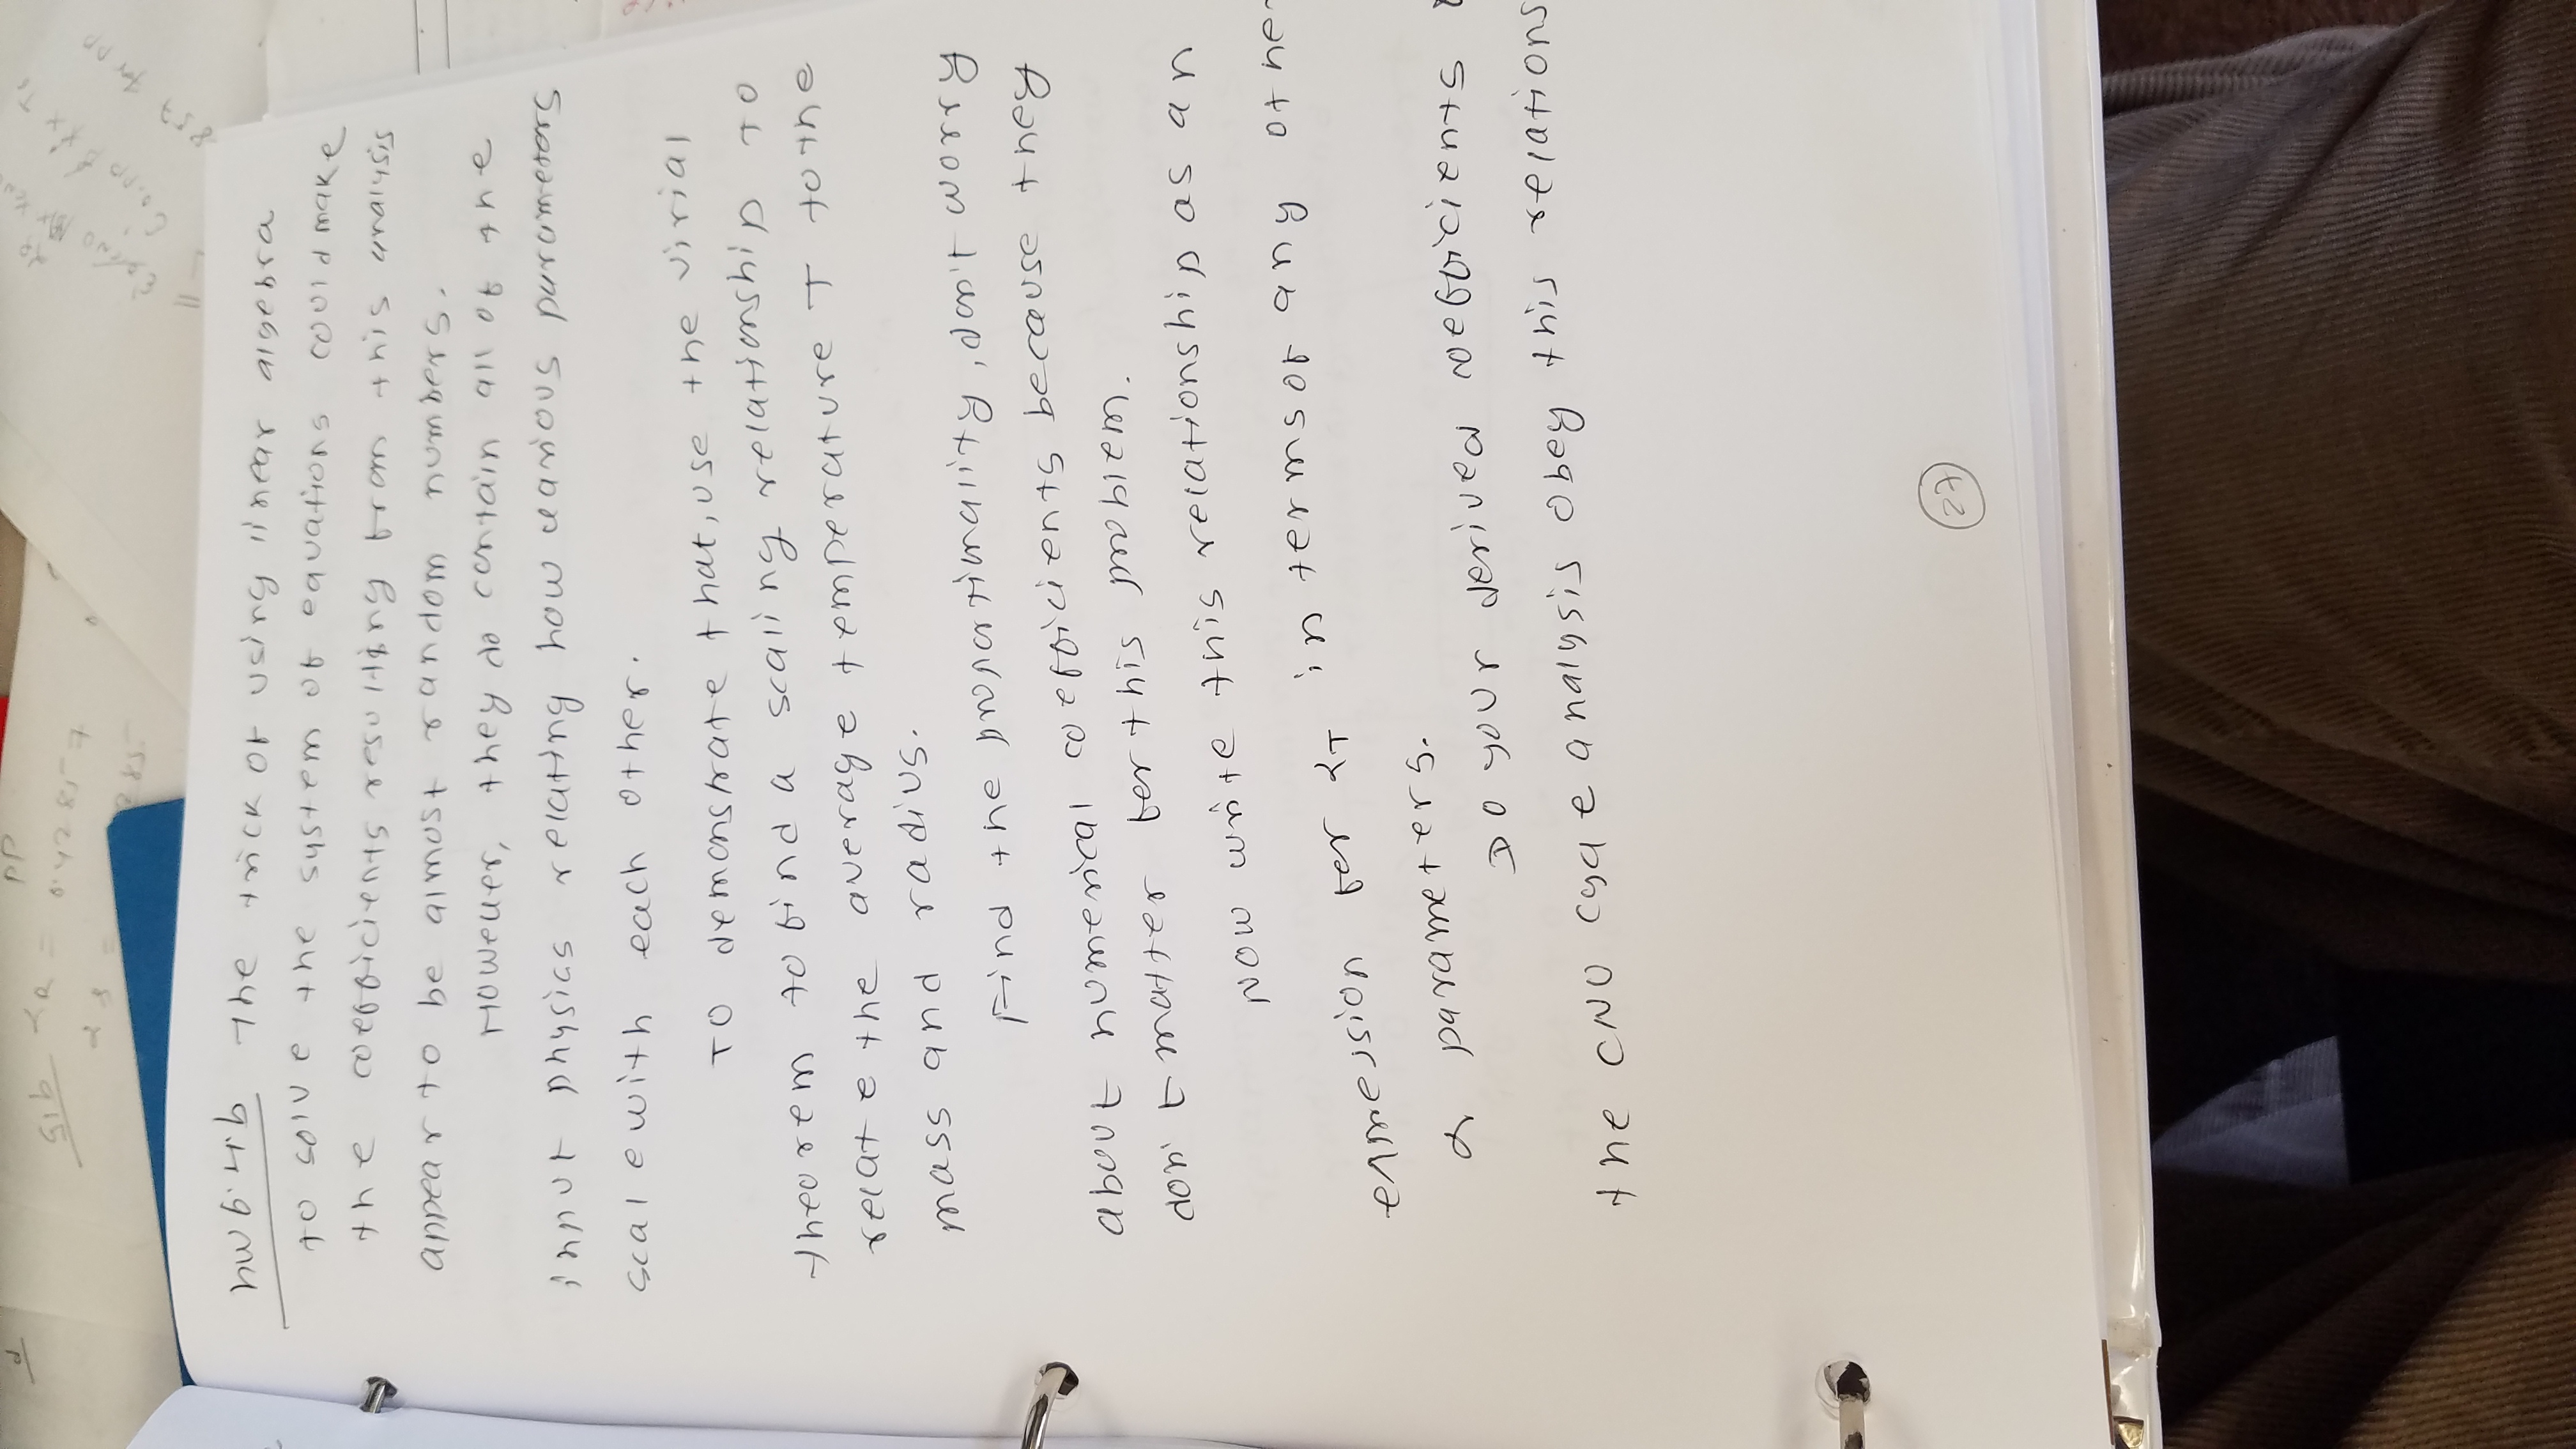 PP
51b α R = 0.42857
hw 6.4.b The trick of using linear algebra
to solve the system of equations could make
the coefficients resulting from this analysis
appear to be almost random numbers.
However, they do contain all of the
input physics relating how various parameters
scale with each other.
TO demonstrate that, use the virial
theorem to find a scaling relationship TO
relate the average temperature T to the
mass and radius.
Find the proportionality, don't worry
about numerical coefficients because they
don't matter for this problem.
NOW write this relationship as an
expression for αT in terms of any othe
α parameters.
DO your derived coefficients
the CNO cycle analysis obey this relations
27